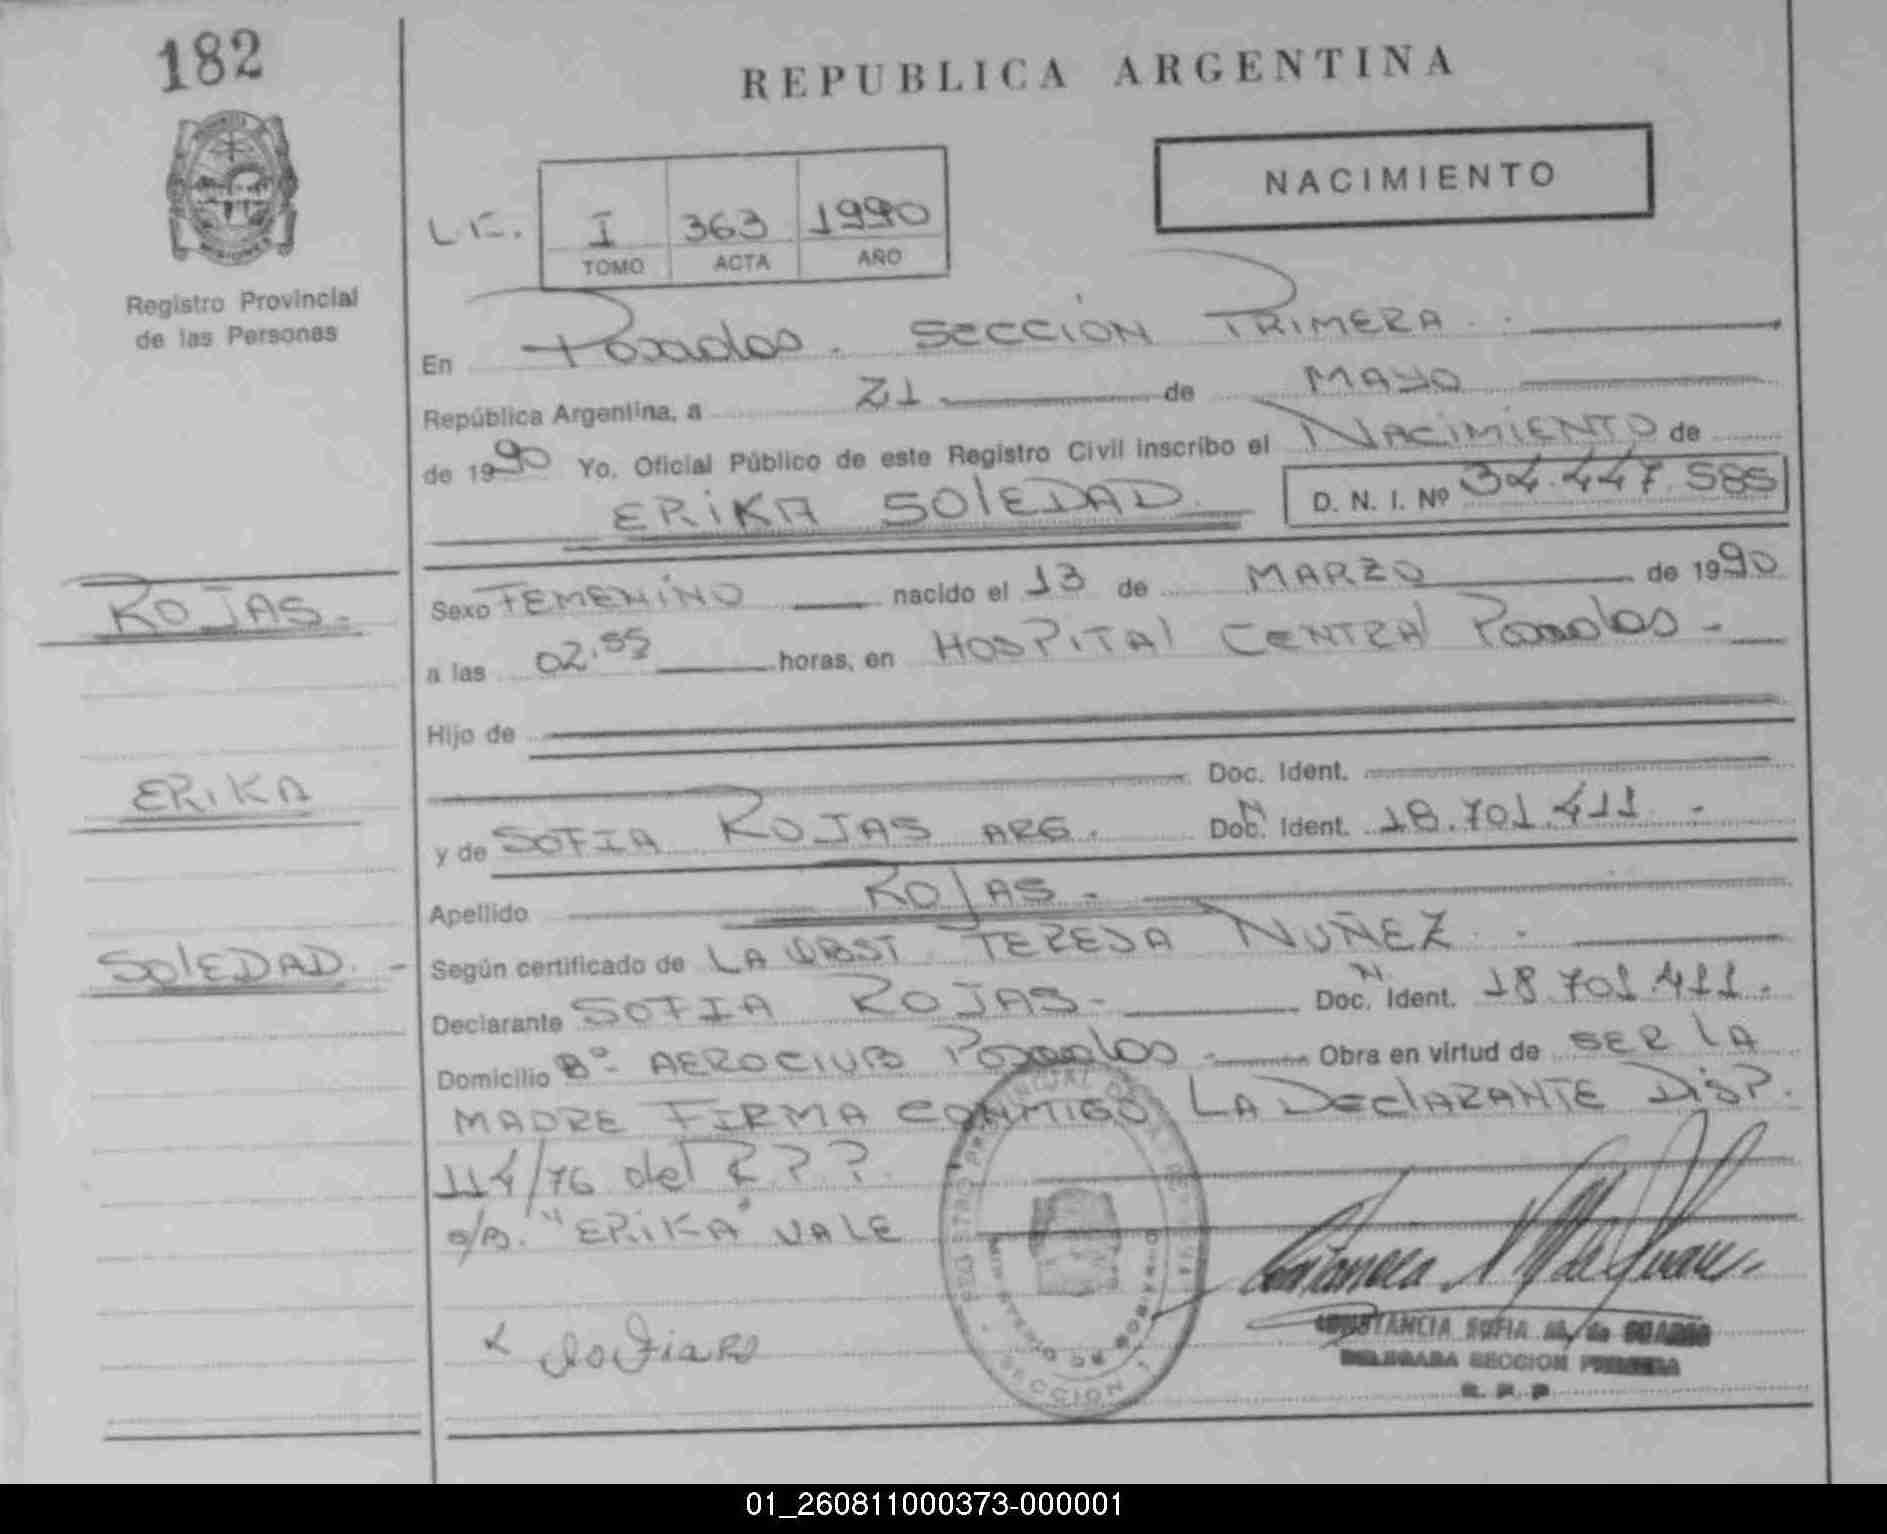 182
REPUBLICA ARGENTINA
NACIMIENTO
L.E. I 363 1990
TOMO ACTA AÑO
Registro Provincial
de las Personas
En Posadas. SECCION PRIMERA.
República Argentina, a 21 de MAYO
de 1990 Yo. Oficial Público de este Registro Civil inscribo el NACIMIENTO de
ERIKA SOLEDAD. D. N. I. Nº 34.447.585
ROJAS.-
Sexo FEMENINO nacido el 13 de MARZO de 1990
a las 02.55 horas, en HOSPITAL CENTRAL Posadas -
Hijo de
Doc. Ident.
ERIKA
y de SOFIA ROJAS ARG. Doc. N Ident. 18.701.411. -
Apellido ROJAS.-
SOLEDAD. -
Según certificado de LA OBST. TERESA NUÑEZ.
Declarante SOFIA ROJAS- Doc. N Ident. 18.701.411.
Domicilio Bº- AEROCLUB Posadas - Obra en virtud de SER LA
MADRE FIRMA CONMIGO LA DECLARANTE DISP.
114/76 del R P P.
s/b. "ERIKA" VALE
REGISTRO PROVINCIAL DE LAS PERSONAS
MINISTERIO DE GOBIERNO
SECCION 1
CONSTANCIA SOFIA M. de
DELEGADA SECCION PRIMERA
R. P. P
01_260811000373-000001